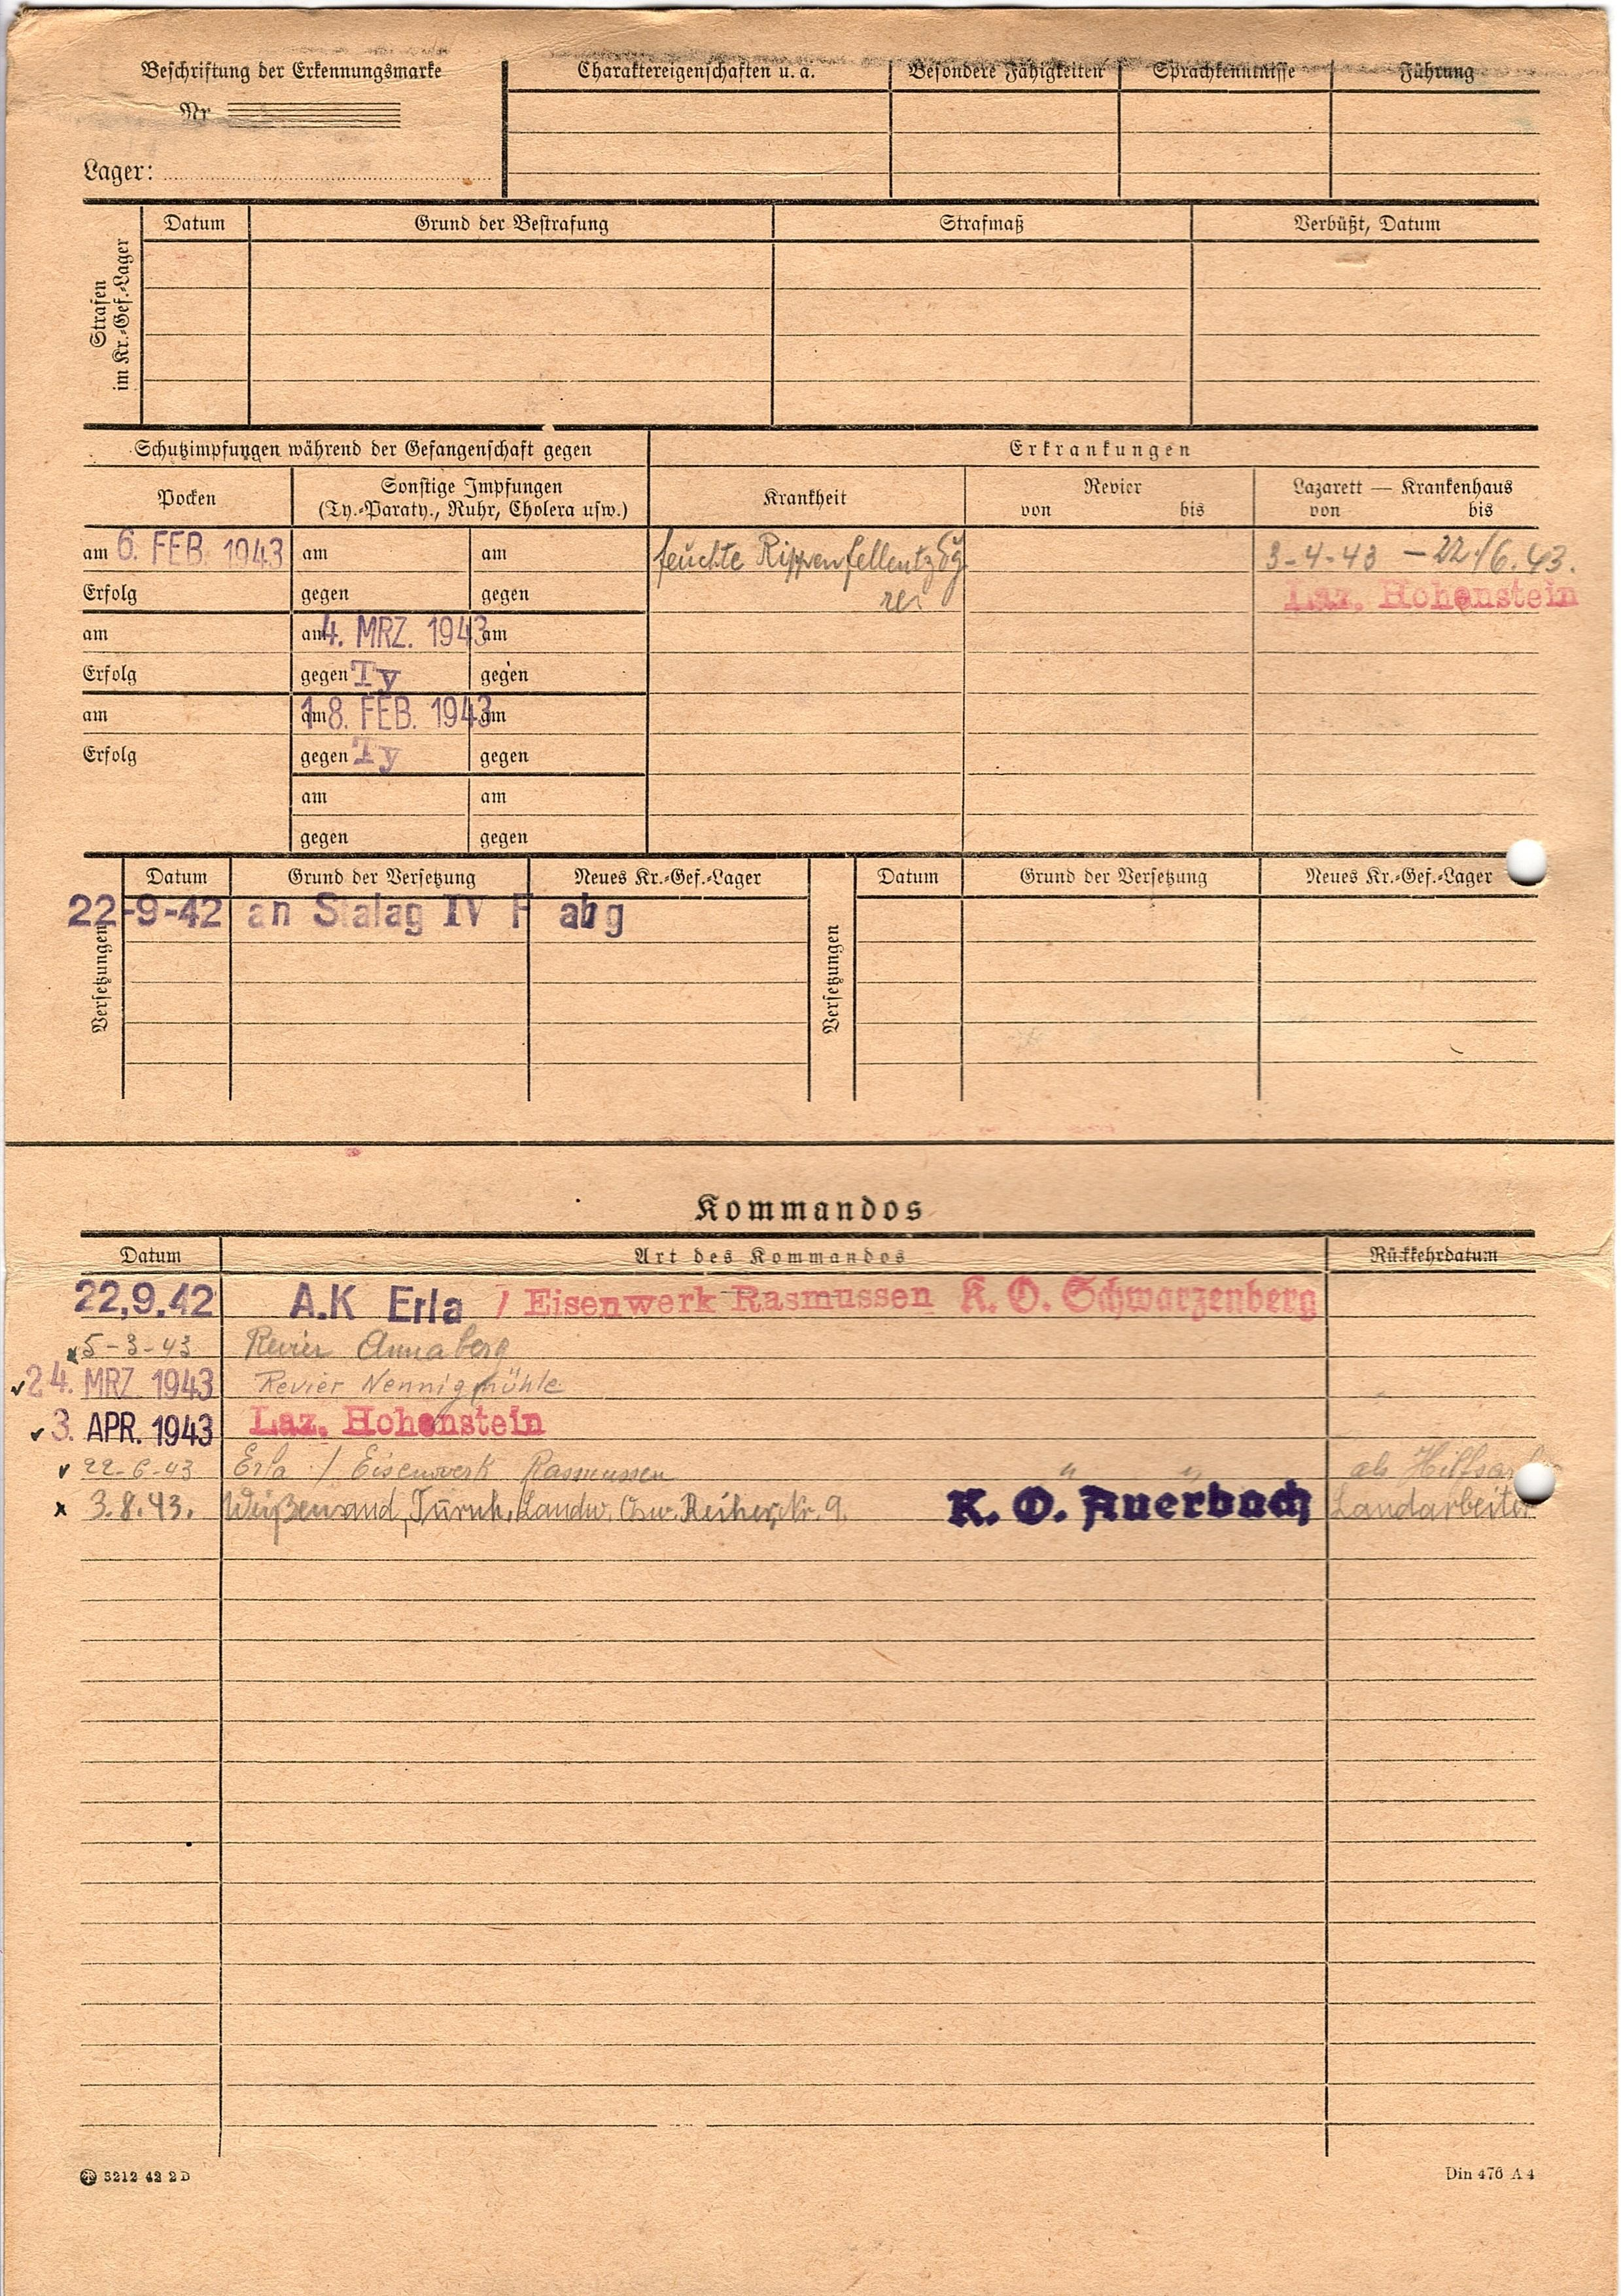 Beschriftung der Erkennungsmarke
Nr.
Lager:
Charaktereigenschaften u. a. Besondere Fähigkeiten Sprachkenntnisse Führung
Strafen im Kr.-Gef.-Lager
Datum Grund der Bestrafung Strafmaß Verbüßt, Datum
Schutzimpfungen während der Gefangenschaft gegen Erkrankungen
Pocken Sonstige Impfungen Krankheit Revier Lazarett — Krankenhaus
(Ty.-Paraty., Ruhr, Cholera usw.) von bis von bis
am 6. FEB. 1943 am am feuchte Rippenfellentzdg 3-4-43 — 22/6.43.
Erfolg gegen gegen Laz. Hohenstein
am am 4. MRZ. 1943 am
Erfolg gegen Ty gegen
am am 18. FEB. 1943 am
Erfolg gegen Ty gegen
am am
gegen gegen
Versetzungen
Datum Grund der Versetzung Neues Kr.-Gef.-Lager
22-9-42 an Stalag IV F abg
Versetzungen
Datum Grund der Versetzung Neues Kr.-Gef.-Lager
Kommandos
Datum Art des Kommandos Rückkehrdatum
22,9.42 A.K Erla / Eisenwerk Rasmussen K. O. Schwarzenberg
5-3-43 Revier Annaberg
24. MRZ. 1943 Revier Nennigmühle
3. APR. 1943 Laz. Hohenstein
22-6-43 Erla / Eisenwerk Rasmussen " " als
3.8.43. Weißensand, Landw. Osw. Reiher, Nr. 9. K. O. Auerbach Landarbeiter
5212 42 2 D
Din 476 A 4